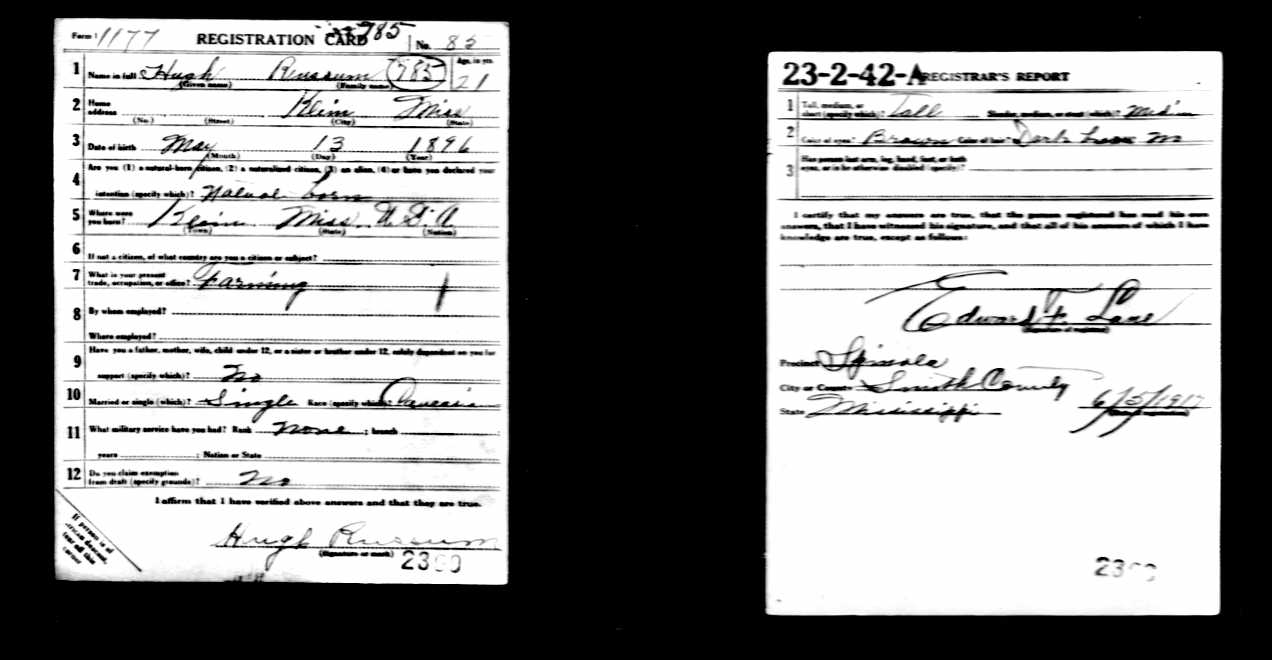 Form 1 1177 REGISTRATION CARD 785 No. 85
1 Name in full Hugh Russum 785 Age, in yrs. 21
(Given name) (Family name)
2 Home address Klein Miss
(No.) (Street) (City) (State)
3 Date of birth May 13 1896
(Month) (Day) (Year)
4 Are you (1) a natural-born citizen, (2) a naturalized citizen, (3) an alien, (4) or have you declared your
intention (specify which)? Natural born
5 Where were you born? Klein Miss U.S.A
(Town) (State) (Nation)
6 If not a citizen, of what country are you a citizen or subject?
7 What is your present trade, occupation, or office? Farming
8 By whom employed?
Where employed?
9 Have you a father, mother, wife, child under 12, or a sister or brother under 12, solely dependent on you for
support (specify which)? No
10 Married or single (which)? Single Race (specify which)? Caucasia
11 What military service have you had? Rank None ; branch
years ; Nation or State
12 Do you claim exemption from draft (specify grounds)? No
I affirm that I have verified above answers and that they are true.
Hugh Russum
(Signature or mark)
If person is of African descent, tear off this corner
23-2-42-A REGISTRAR'S REPORT
1 Tall, medium, or short (specify which)? Tall Slender, medium, or stout (which)? Med'm
2 Color of eyes? Brown Color of hair? Dark brown No
3 Has person lost arm, leg, hand, foot, or both eyes, or is he otherwise disabled (specify)?
I certify that my answers are true, that the person registered has read his own
answers, that I have witnessed his signature, and that all of his answers of which I have
knowledge are true, except as follows:
Edward F. Lane
(Signature of registrar)
Precinct
City or County Smith County
State Mississippi 6/5/1917